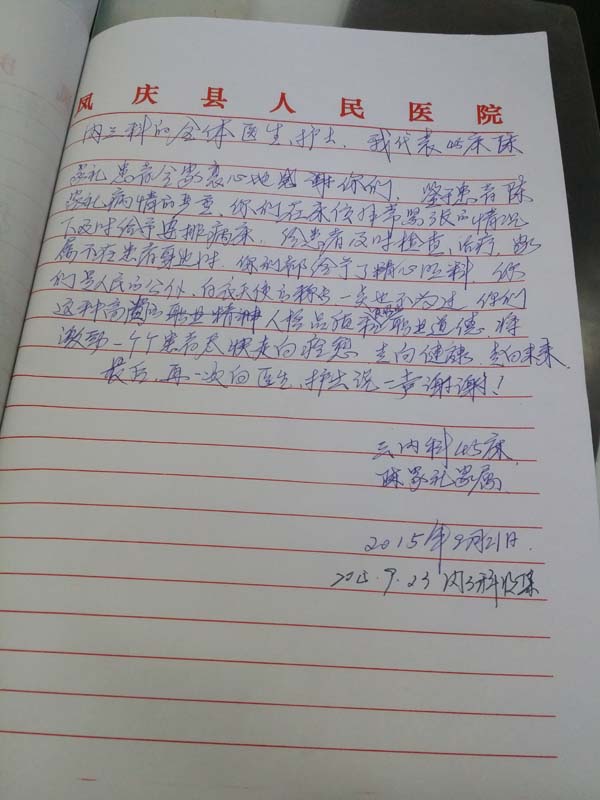 凤庆县人民医院
内三科的全体医生、护士，我代表45床陈
家礼患者全家衷心地感谢你们，鉴于患者陈
家礼病情的严重，你们在床位非常紧张的情况
下及时给予安排病床，给患者及时检查、治疗，家
属不在患者身边时，你们都给予了精心照料，你
们是人民的公仆，白衣天使的称号一点也不为过，你们
这种高贵的职业精神人格品质和职业道德，将
激励一个个患者尽快走向痊愈，走向健康，走向未来。
最后，再一次向医生、护士说一声谢谢！
三内科45床
陈家礼家属
2015年9月21日.
2015.9.23 内3科收集